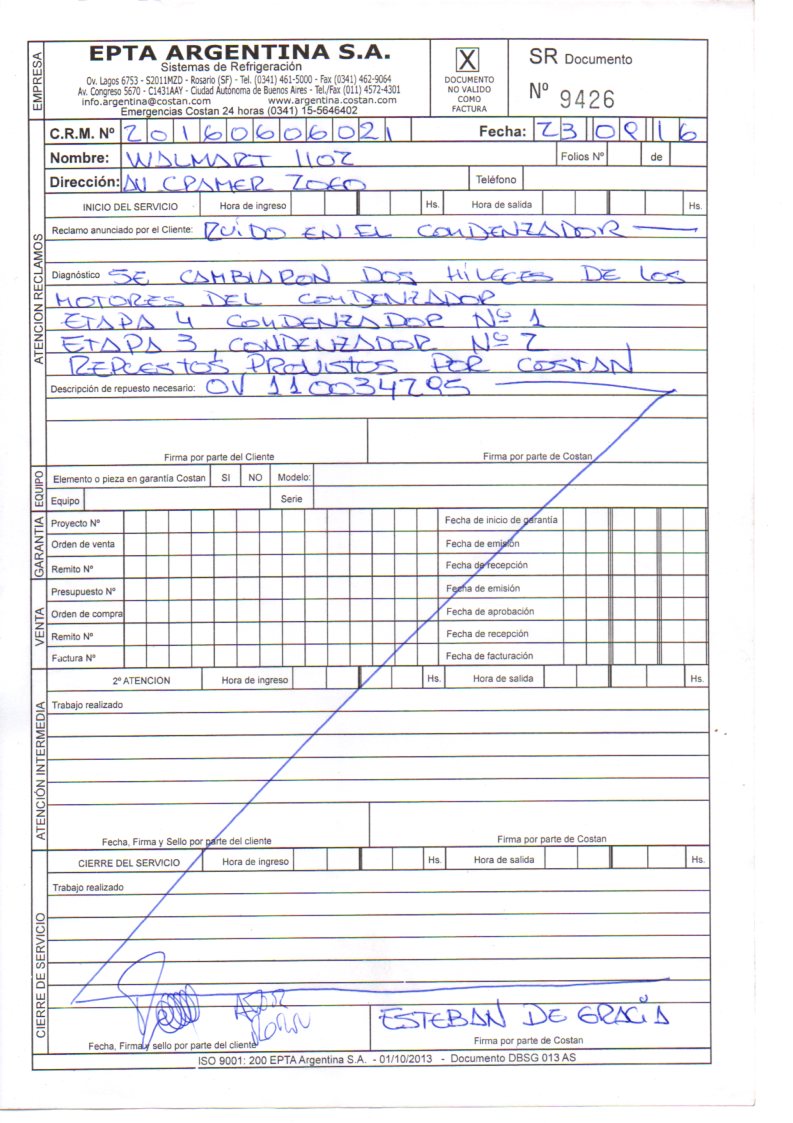 EMPRESA
EPTA ARGENTINA S.A.
Sistemas de Refrigeración
Ov. Lagos 6753 - S2011MZD - Rosario (SF) - Tel. (0341) 461-5000 - Fax (0341) 462-9064
Av. Congreso 5670 - C1431AAY - Ciudad Autónoma de Buenos Aires - Tel./Fax (011) 4572-4301
info.argentina@costan.com www.argentina.costan.com
Emergencias Costan 24 horas (0341) 15-5646402
X
DOCUMENTO
NO VALIDO
COMO
FACTURA
SR Documento
Nº 9426
C.R.M. Nº 20160606021 Fecha: 23 09 16
Nombre: WALMART 1102 Folios Nº de
Dirección: AV CRAMER Teléfono
INICIO DEL SERVICIO Hora de ingreso Hs. Hora de salida Hs.
ATENCION RECLAMOS
Reclamo anunciado por el Cliente: RUIDO EN EL CONDENZADOR
Diagnóstico SE CAMBIARON DOS HILECES DE LOS
MOTORES DEL CONDENZADOR
ETAPA 4 CONDENZADOR Nº 1
ETAPA 3 CONDENZADOR Nº 2
REPUESTOS PROVISTOS POR COSTAN
Descripción de repuesto necesario: OV 1100034295
Firma por parte del Cliente Firma por parte de Costan
EQUIPO
Elemento o pieza en garantía Costan SI NO Modelo:
Equipo Serie
GARANTIA
Proyecto Nº Fecha de inicio de garantía
Orden de venta Fecha de emisión
Remito Nº Fecha de recepción
VENTA
Presupuesto Nº Fecha de emisión
Orden de compra Fecha de aprobación
Remito Nº Fecha de recepción
Factura Nº Fecha de facturación
ATENCIÓN INTERMEDIA
2º ATENCION Hora de ingreso Hs. Hora de salida Hs.
Trabajo realizado
Fecha, Firma y Sello por parte del cliente Firma por parte de Costan
CIERRE DE SERVICIO
CIERRE DEL SERVICIO Hora de ingreso Hs. Hora de salida Hs.
Trabajo realizado
ESTEBAN DE GRACIA
Fecha, Firma y sello por parte del cliente Firma por parte de Costan
ISO 9001: 200 EPTA Argentina S.A. - 01/10/2013 - Documento DBSG 013 AS